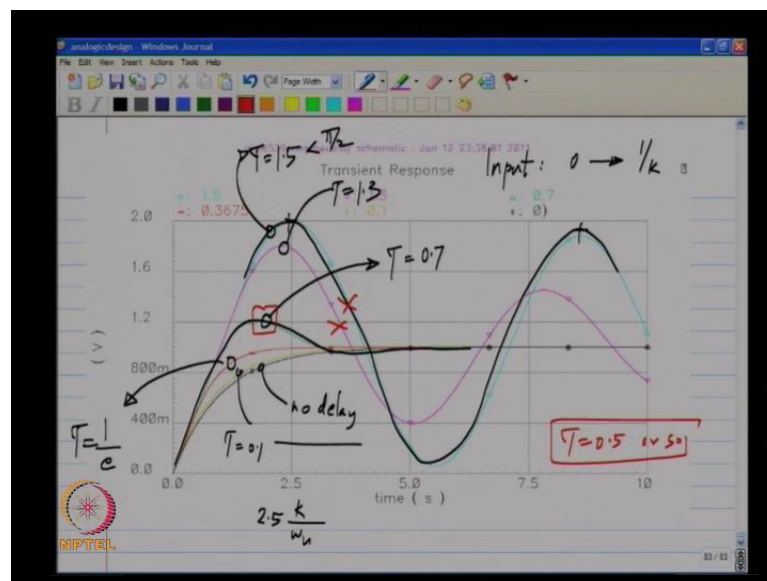 analogicdesign - Windows Journal
File Edit View Insert Actions Tools Help
Page Width
B I
T=1.5 < π/2
schematic : Jan 12 23:38:01 2011
Transient Response
Input: 0 → 1/k
T=1.3
: 1.5
: 0.7
: 0.3675
: 0.1
: 0)
2.0
1.6
1.2
800m
400m
0.0
(V)
T=0.7
no delay
T=1/e
T=0.1
T=0.5 or so
0.0 2.5 5.0 7.5 10
time ( s )
2.5 k/ωu
NPTEL
83 / 83